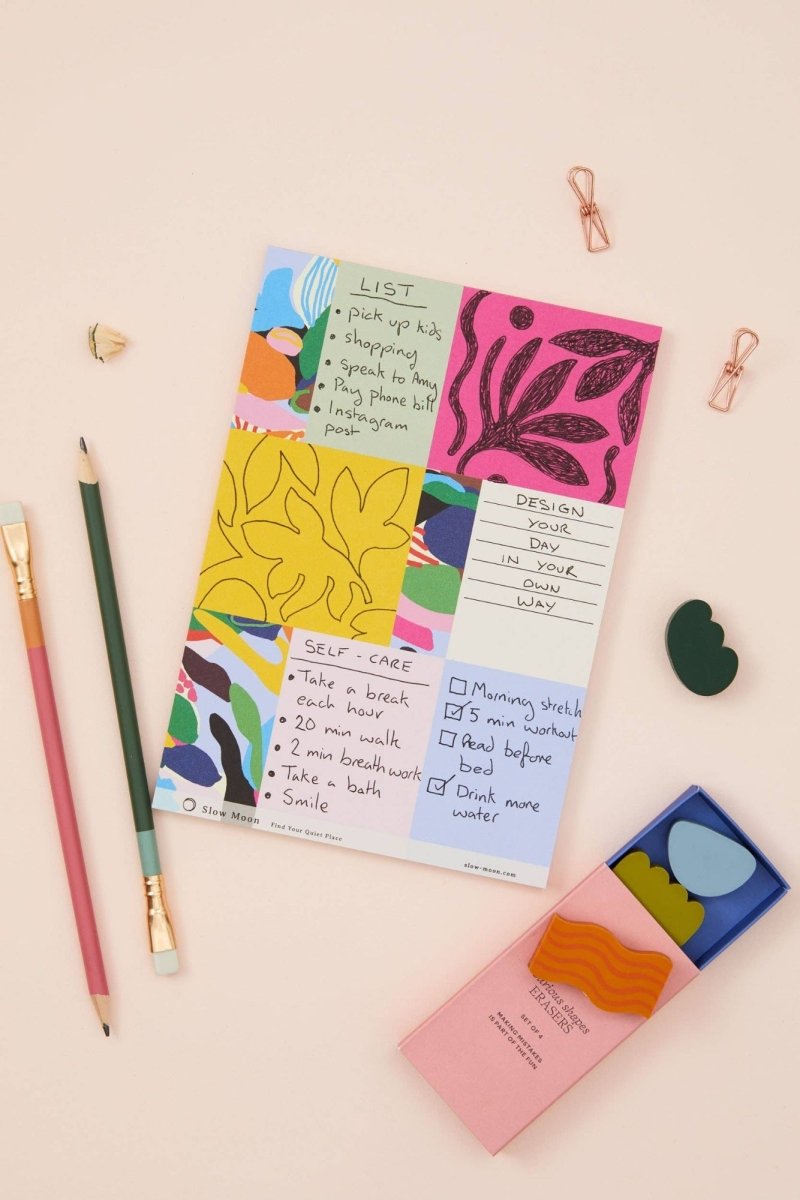 LIST
• pick up kids
• shopping
• speak to Amy
• Pay phone bill
• Instagram
post
DESIGN
YOUR
DAY
IN YOUR
OWN
WAY
SELF-CARE
• Take a break
each hour
• 20 min walk
• 2 min breathwork
• Take a bath
• Smile
Morning stretch
5 min workout
Read before
bed
Drink more
water
Slow Moon
Find Your Quiet Place
slow-moon.com
shapes
ERASERS
SET OF 4
MAKING MISTAKES
IS PART OF THE FUN